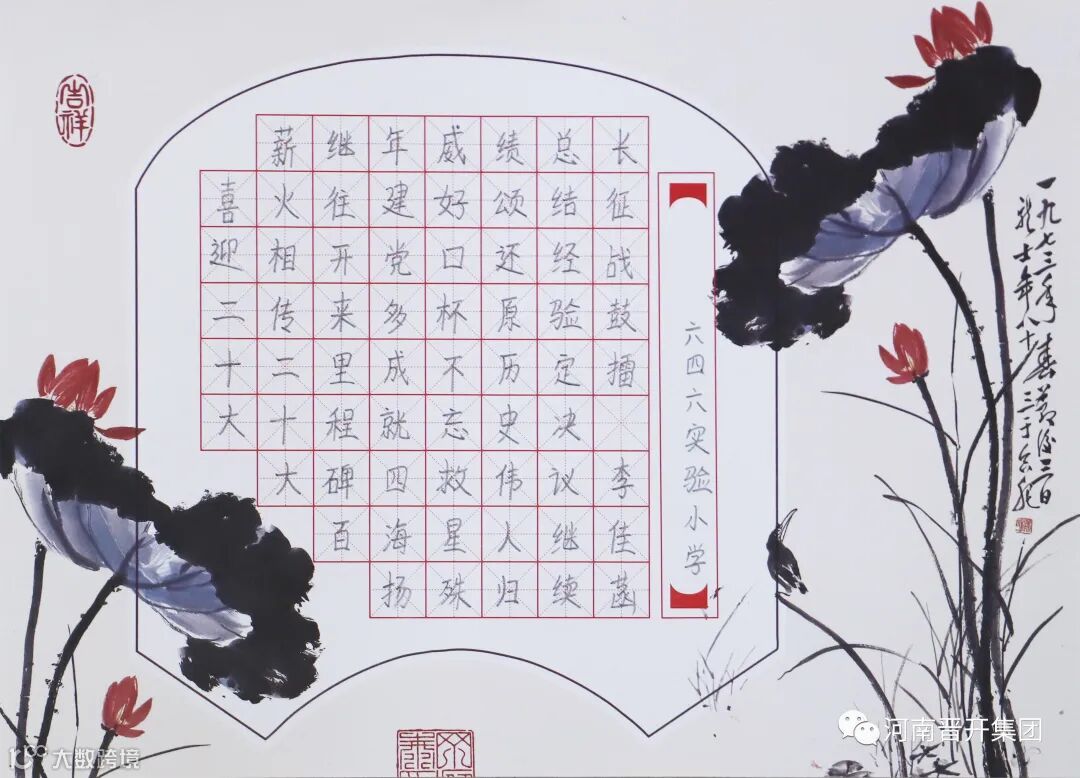 吉祥
六四六实验小学
长征战鼓擂 李佳菡
总结经验定决议继续
绩颂还原历史伟人归
威好口杯不忘救星殊
年建党多成就四海扬
继往开来里程碑百
薪火相传二十大
喜迎二十大
河南晋开集团
大数跨境